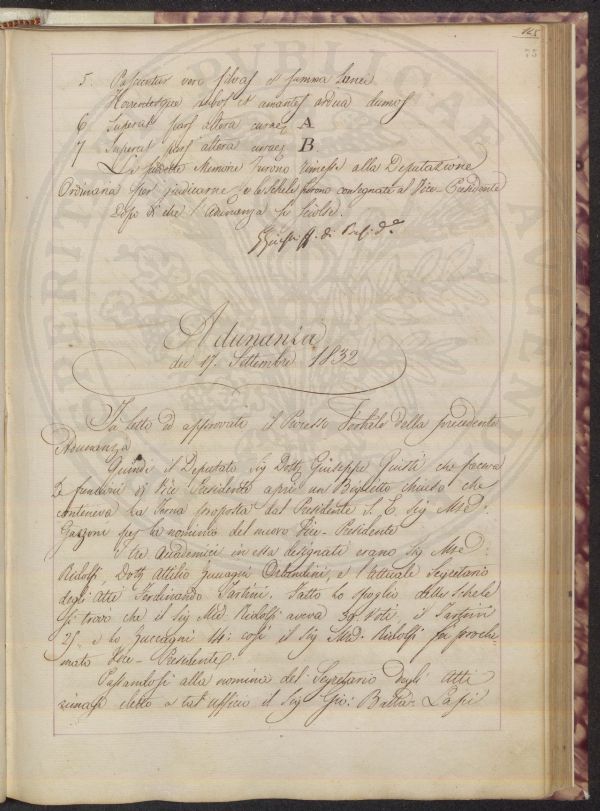 145
75
5. Pascuntur vero silvas et summa Licaei
Horrentesque rubos et amantes ardua dumos
6 Superat pars altera curae A
7 Superat pars altera curae B
Le suddette Memorie furono rimesse alla Deputazione
Ordinaria per giudicarne, e le schede furono consegnate al Vice-Presidente
Dopo di che l'Adunanza si sciolse.
ff. di Pres. de
Adunanza
dei 17. Settembre 1832
Fu letto ed approvato il Processo Verbale della precedente
Adunanza
Quindi il Deputato Sig Dott. Giuseppe Giusti che faceva
le funzioni di Vice Presidente aprì un Biglietto chiuso che
conteneva la Terna proposta dal Presidente S. E. Sig Mse
Garzoni per la nomina del nuovo Vice-Presidente
I tre Accademici in essa designati erano Sig Mse
Ridolfi, Dott. Attilio Zuccagni Orlandini, e l'attuale Segretario
degli Atti Ferdinando Tartini. Fatto lo spoglio delle schede
si trovò che il Sig Mse Ridolfi aveva 39. Voti, il Tartini
25 e lo Zuccagni 14: così il Sig Mse Ridolfi fu procla
mato Vice-Presidente.
Passandosi alla nomina del Segretario degli Atti
rimase eletto a tal ufficio il Sig Gio: Batta Lapi